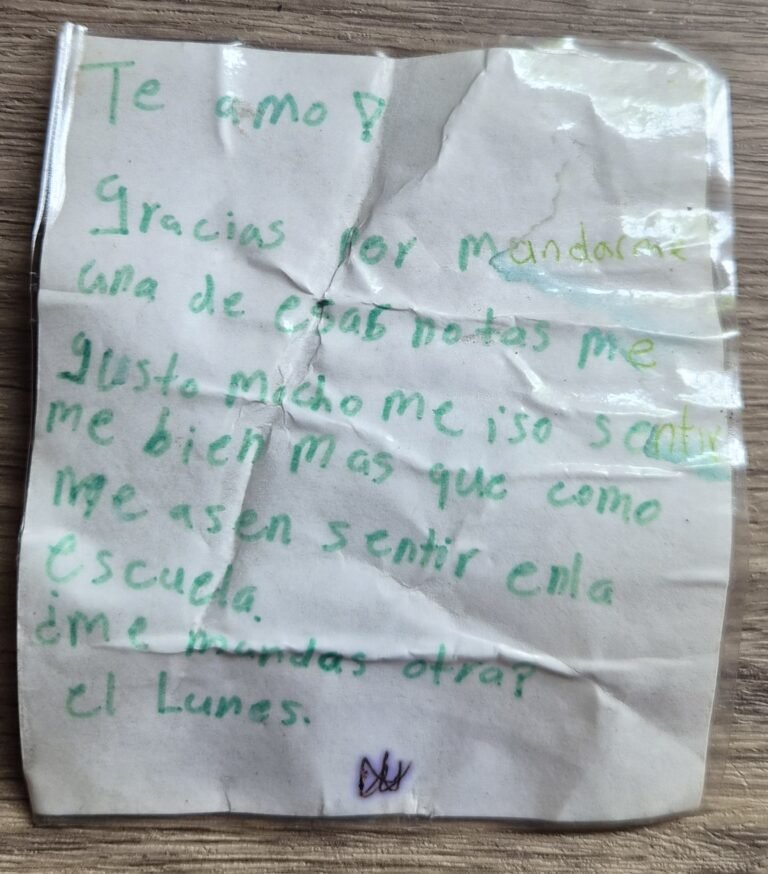 Te amo!
Gracias por mandarme
una de esas notas me
gusto mucho me iso sentir
me bien mas que como
me asen sentir enla
escuela.
¿me mandas otra?
el Lunes.